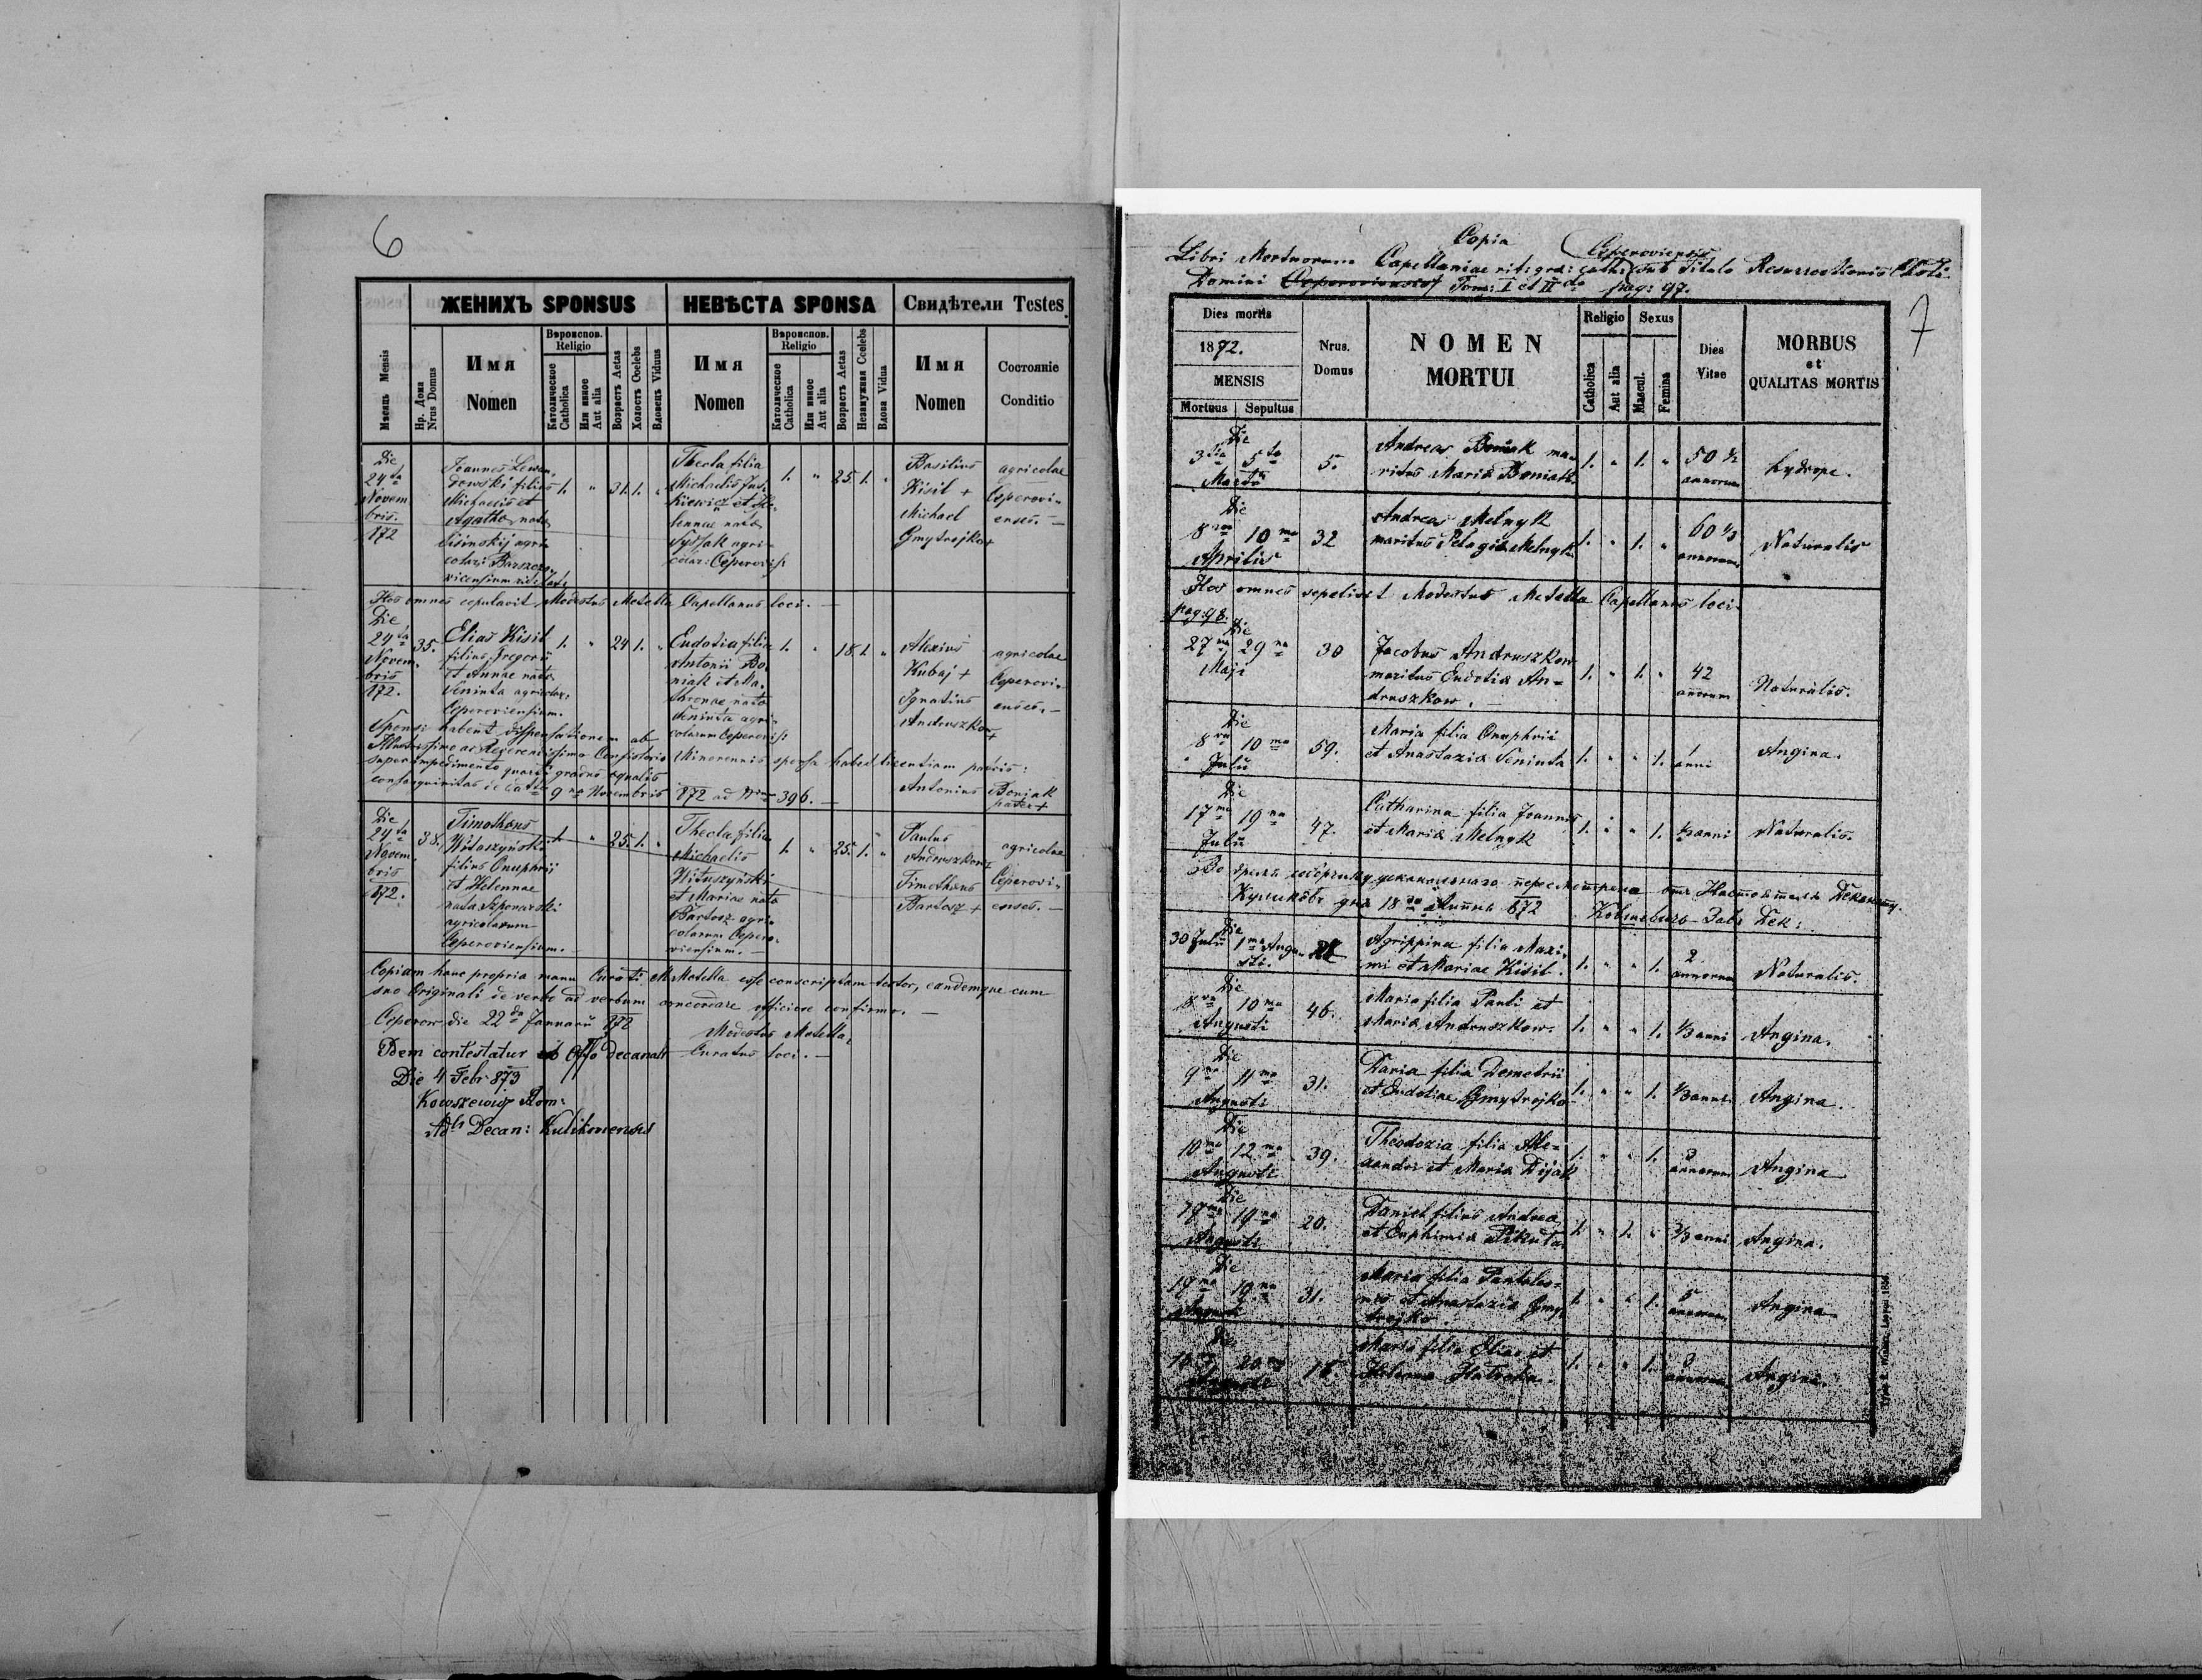 6
ЖЕНИХЪ SPONSUS
НЕВѢСТА SPONSA
Свидѣтели Testes
Мѣсяць Mensis
Нр. Дома
Nrus Domus
Имя
Nomen
Вѣроиспов.
Religio
Католическое
Catholica
Или иное
Aut alia
Возрастъ Aetas
Холостъ Coelebs
Вдовецъ Viduus
Имя
Nomen
Вѣроиспов.
Religio
Католическое
Catholica
Или иное
Aut alia
Возрастъ Aetas
Незамужная Coelebs
Вдова Vidua
Имя
Nomen
Состояніе
Conditio
Die
24ta
Novem
bris.
872
Joannes Lewan
dowski filius
Michaelis et
Agatha nata
agri
1. " 31. 1. "
Thecla filia
Michaelis
et He
lennae nata
agri
colar: Ceperovis:
1. " 25. 1. "
Basilius
Kisil +
Michael
Gmytrojko +
agricolae
Ceperovi-
enses. —
Hos omnes copulavit Modestus Metella Capellanus loci. —
Die
24ta
Novem
bris
872.
35.
Elias Kisil
filius Gregorii
et Annae nata
Seninta agricolar:
Ceperoviensium.
1. " 24 1. "
Eudotia filia
Antonii Bo
niak et Ma.
thronae nata
Seninta agri
colarum Ceperovis:
1. " 18. 1. "
Alexius
Kubaj +
Ignatius
Andruszkow +
agricolae
Ceperovi-
enses. —
Sponsi habent dispensationem ab
Illustrissimo ac Reverendissimo Consistorio
super impedimento quarti gradus equalis
consanguinitas de dato 9na Novembris 872 ad Nrum 396. —
Minorennis sponsa habet licentiam patris:
Antonius Boniak
pater +
Die
24ta
Novem
bris
872.
38.
Timotheus
Witoszyński
filius Onuphrii
et Helennae
nata
agricolarum
Ceperoviensium. —
1. " 25. 1. "
Thecla filia
Michaelis
Wituszyński
et Mariae nata
Bartosz agri-
colarum Cepero-
viensium. —
1. " 25. 1. "
Paulus
Andruszkow +
Timotheus
Bartosz +
agricolae
Ceperovi-
enses. —
Copiam hanc propria manu Curati M. Metella esse conscriptam testor, eandemque cum
suo Originali de verbo ad verbum concordare officiose confirmo. —
Ceperow die 22da Januarii 872
Modestus Metella,
Curatus loci. —
Idem contestatur ab Offo decanali
Die 4 Febr 873
Adls Decan: Kulikoviensis
7
Copia
Libri Mortuorum Capellaniae rit: gra: cath: Ceperoviensis sub Titulo Resurrectionis
Domini Ceperoviensis Tom: I et IIdo pag: 97.
Dies mortis
1872.
MENSIS
Mortuus Sepultus
Nrus.
Domus
NOMEN
MORTUI
Religio
Catholica
Aut alia
Sexus
Mascul.
Femina
Dies
Vitae
MORBUS
et
QUALITAS MORTIS
Die
3tia 5ta
Martii
5.
Andreas Boniak ma-
ritus Mariae Boniak.
1. " 1. "
50 1/2
annorum
hydrope.
Die
8va 10ma
Aprilis
32
Andreas Melnyk
maritus Pelagiae Melnyk
1. " 1. "
60 1/3
annorum
Naturalis
Hos omnes sepelivit Modestus Metella Capellanus loci.
pag: 98.
Die
27ma 29na
Maji
30
Jacobus Andruszkow
maritus Eudotiae An-
druszkow. —
1. " 1. "
42
annorum
Naturalis.
Die
8va 10ma
Julii
59.
Maria filia Onuphrii
et Anastaziae Seninta
1. " " 1.
1
anni
Angina.
Die
17ma 19na
Julii
47.
Catharina filia Joannis
et Mariae Melnyk
1. " " 1.
1/2 anni
Naturalis.
Die
30 Julii 1ma Augu-
sti.
Agrippina filia Maxi-
mi et Mariae Kisil.
1. " " 1.
2
annorum
Naturalis.
Die
8va 10ma
Augusti
46.
Maria filia Pauli et
Mariae Andruszkow.
1. " " 1.
1/3 anni
Angina.
Die
9na 11ma
Augusti
31.
Daria filia Demetrii
et Eudotiae Gmytrojko
1. " " 1.
1/3 anni
Angina.
Die
10ma 12ma
Augusti
39.
Theodozia filia Ale-
xandri et Mariae Dijak
1. " " 1.
3
annorum
Angina
Die
17ma 19na
Augusti
20.
Daniel filius Andreae
et Euphimiae Pikuta
1. " 1. "
2/3 anni
Angina.
Die
17ma 19na
Augusti
31.
Maria filia Pantaleo-
nis et Anastaziae Gmy
trojko.
1. " " 1.
5
annorum
Angina
Die
18 20ma
Augusti
Maria filia Eliae et
Helenae
1. " " 1.
3
annorum
Angina.